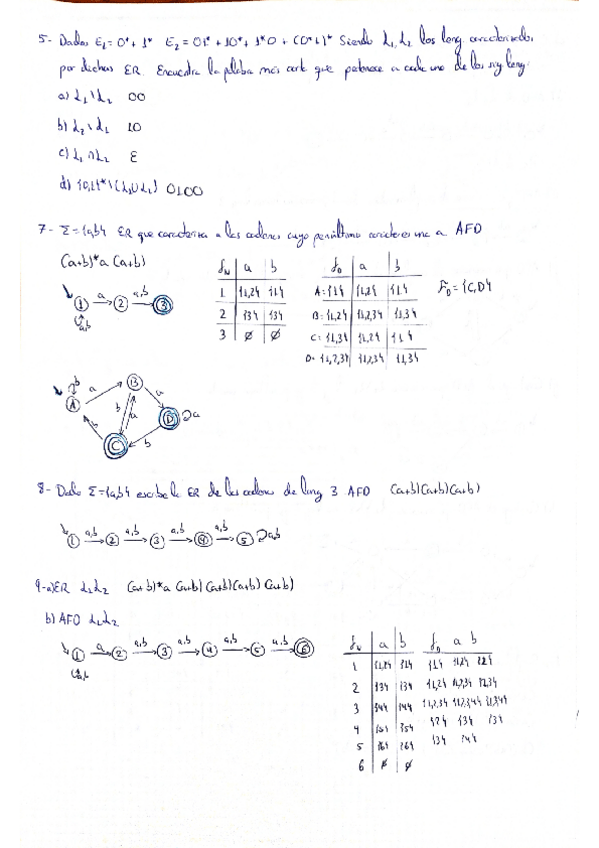 5- Dados E₁= 0*+ 1* E₂ = 01* + 10* + 1*0 + (0*1)* Siendo L₁, L₂ los leng. caracterizados
por dichas ER. Encuentra la palabra más corta que pertenece a cada uno de los sig leng.
a) L₁\L₂ 00
b) L₂\L₁ 10
c) L₁∩L₂ ε
d) {0,1}*\(L₁∪L₂) 0100
7- Σ={a,b} ER que caracteriza a las cadenas cuyo penúltimo carácter es una a AFD
(a+b)*a (a+b)
a
a,b
1
2
3
a,b
fN a b
1 {1,2} {1}
2 {3} {3}
3 ∅ ∅
fD a b
A={1} {1,2} {1}
B={1,2} {1,2,3} {1,3}
C={1,3} {1,2} {1}
D={1,2,3} {1,2,3} {1,3}
FD = {C,D}
b
a
B
a
A
b
a
D
a
b
C
b
8- Dado Σ={a,b} escribe la ER de las cadenas de long 3 AFD (a+b)(a+b)(a+b)
a,b a,b a,b a,b
1 2 3 4 5 a,b
9-a)ER L₁L₂ (a+b)*a (a+b)(a+b)(a+b)(a+b)
b) AFD L₁L₂
a a,b a,b a,b a,b
1 2 3 4 5 6
a,b
fN a b
1 {1,2} {1}
2 {3} {3}
3 {4} {4}
4 {5} {5}
5 {6} {6}
6 ∅ ∅
fD a b
{1} {1,2}
{1,2} {1,2,3}
{1,2,3} {1,2,3,4}